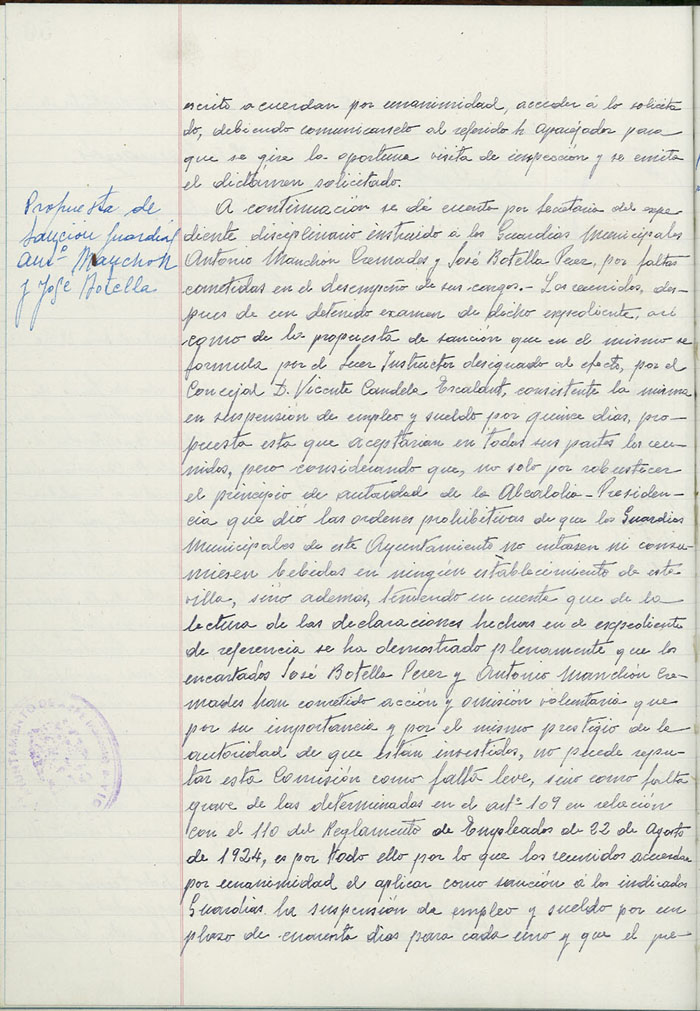 escrito acuerdan por unanimidad, acceder á lo solicita
do, debiendo comunicarselo al referido Sr. Aparejador para
que se gire la oportuna visita de inspección y se emita
el dictámen solicitado.
Propuesta de
sanción guardias
Antº. Manchon
y José Botella
A continuación se dá cuenta por Secretaria del expe
diente disciplinario instruido á los Guardias Municipales
Antonio Manchón Cremades y José Botella Perez, por faltas
cometidas en el desempeño de sus cargos.- Los reunidos, des-
pues de un detenido examen de dicho expediente, así
como de la propuesta de sanción que en el mismo se
formula por el Juez Instructor designado al efecto, por el
Concejal D. Vicente Candela Escalant, consistente la misma
en suspensión de empleo y sueldo por quince días, pro-
puesta esta que aceptarian en todas sus partes los reu-
nidos, pero considerando que, no solo por robustecer
el principio de autoridad de la Alcaldia-Presiden-
cia que dió las ordenes prohibitivas de que los Guardias
Municipales de este Ayuntamiento no entrasen ni consu-
miesen bebidas en ningún establecimiento de esta
villa, sino ademas, teniendo en cuenta que de la
lectura de las declaraciones hechas en el expediente
de referencia se ha demostrado plenamente que los
encartados José Botella Perez y Antonio Manchón Cre-
mades han cometido acción y omisión voluntaria que
por su importancia y por el mismo prestigio de la
autoridad de que están investidos, no puede repu-
tar esta Comisión como falta leve, sino como falta
grave de las determinadas en el artº 109 en relación
con el 110 del Reglamento de Empleados de 22 de Agosto
de 1924, es por todo ello por lo que los reunidos acuerdan
por unanimidad el aplicar como sanción á los indicados
Guardias la suspensión de empleo y sueldo por un
plazo de cuarenta dias para cada uno y que el pre-